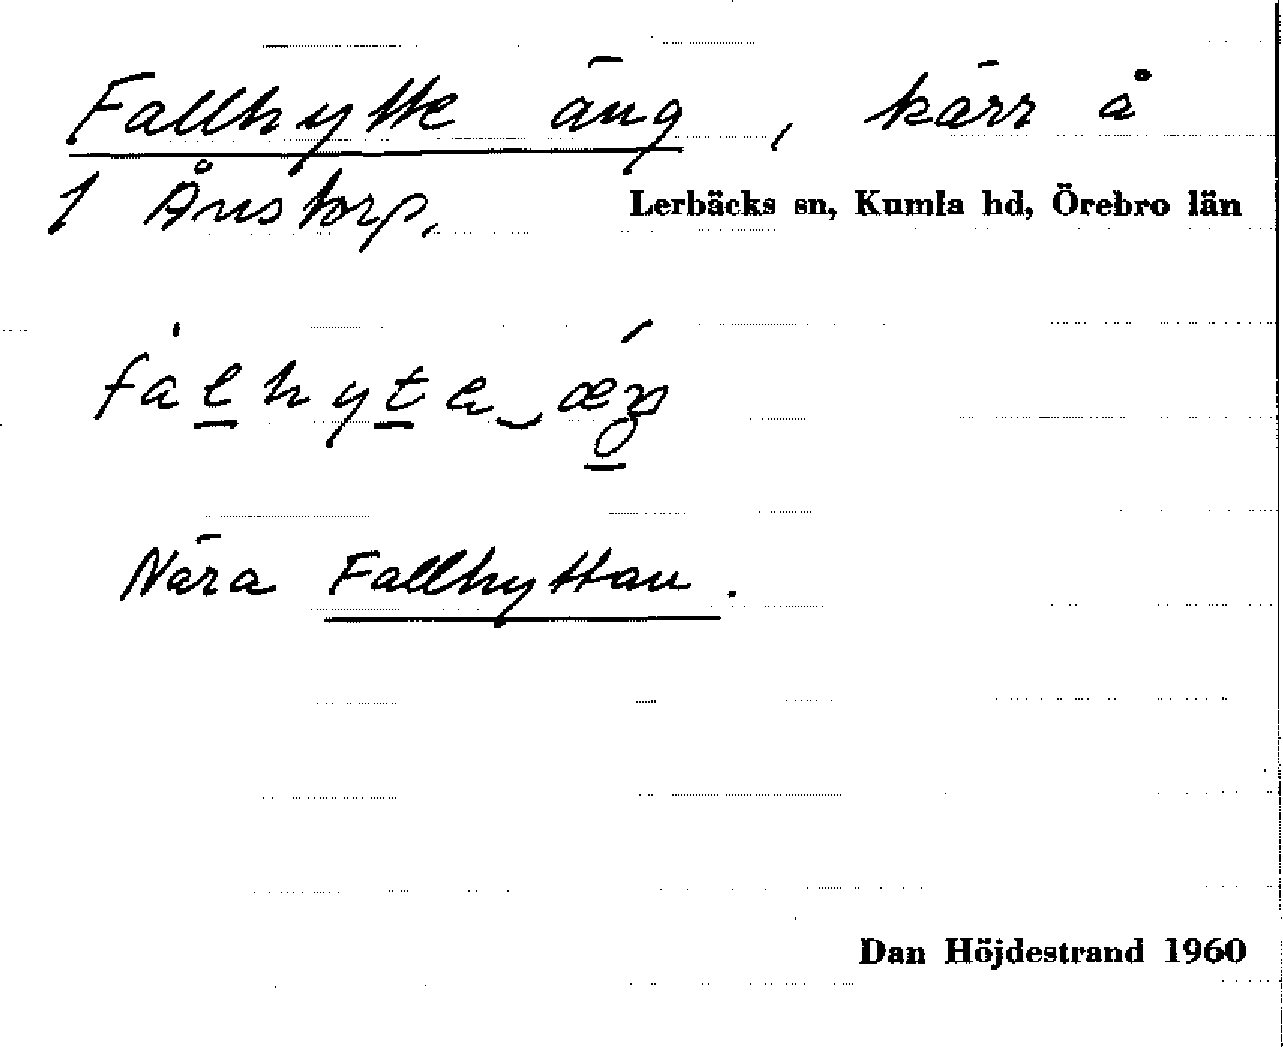 Fallhytte äng, kärr å
1 Ånstorp. Lerbäcks sn, Kumla hd, Örebro län
Nära Fallhyttan.
Dan Höjdestrand 1960